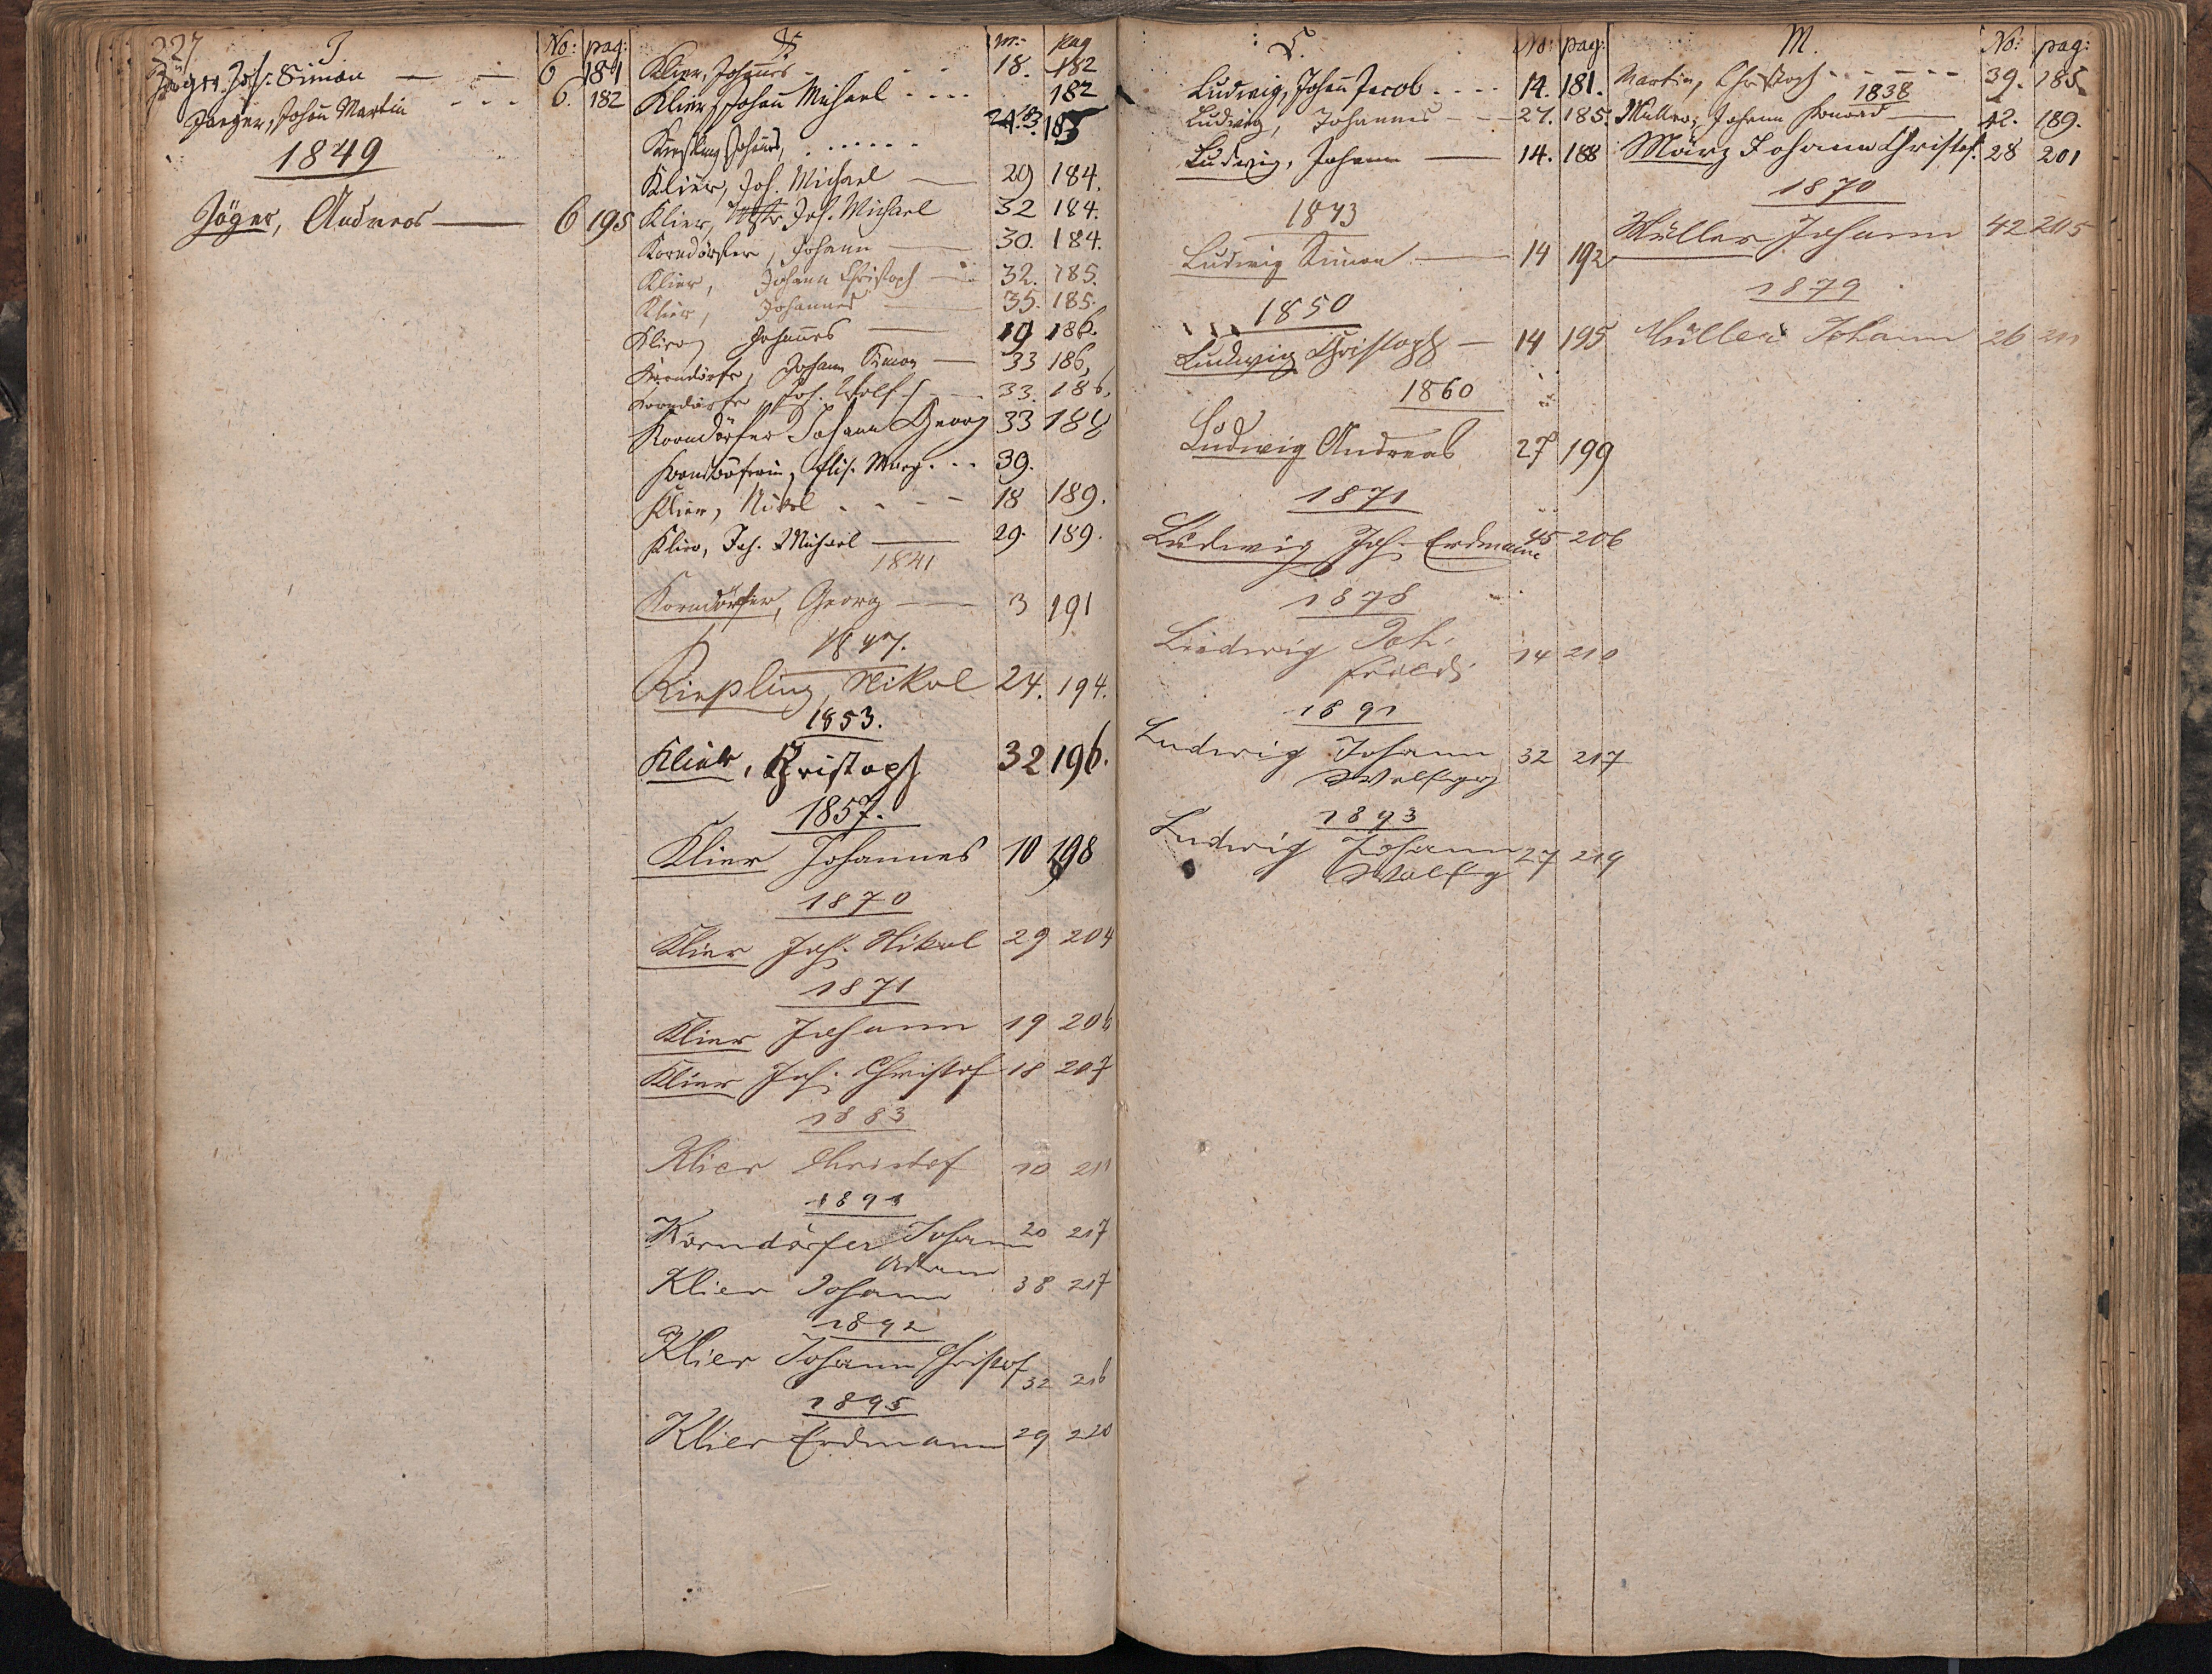 227
J. No: pag:
Jäger, Joh. Simon — — 6 181
Jaeger, Johañ Martin - - - 6. 182
1849
Jäger, Andreas — 6 195
K. nr. pag
Klier, Johañes - - - 18. 182
Klier, Johañ Michael - - - - 182
Kiesling Johañes, . . . . . . 24. 183
Klier, Joh. Michael — 29 184.
Klier, Joh. Michael 32 184.
Korndörfer, Johann — 30. 184.
Klier, Johann Christoph — 32. 185.
Klier, Johannes — 35. 185.
Klier, Johannes — 19 186.
Korndörfer, Johann Simon — 33 186,
Korndörfer, Joh. Wolf — 33. 186,
Korndörfer Johann Georg 33 188
Korndörferin, Elis. Marg. - - 39.
Klier, Nikol . - - - 18 189.
Klier, Joh. Michael — 29. 189.
1841
Korndörfer, Georg — 3 191
1847.
Kießling, Nikol 24. 194.
1853.
Klier, Christoph 32 196.
1857.
Klier Johannes 10 198
1870
Klier Joh. Nikol 29 204
1871
Klier Johann 19 206
Klier Joh. Christof 18 207
1883
Klier Christof 10 211
1891
Korndörfer Johann 20 217
Adam
Klier Johann 38 217
1892
Klier Johann Christof
32 216
1895
Klier Erdmann 29 220
L. No: pag:
Ludwig, Johañ Jacob - - - - 14. 181.
Ludwig, Johannes - - - 27. 185.
Ludwig, Johann — 14. 188
1843
Ludwig Simon — 14 192
1850
Ludwig Christoph — 14 195
1860
Ludwig Andreas 27 199
1871
Ludwig Joh. Erdmann 45 206
1878
Ludwig Joh.
Friedr. 14 210
1891
Ludwig Johann 32 217
Wolfgg
1893
Ludwig Johann 27 219
Wolfg
M. No: pag:
Martin, Christoph - - - - - - 39. 185.
1838
Müller, Johann Konrad — 42. 189.
März Johann Christof. 28 201
1870
Müller Johann 42 205
1879
Müller Johann 26 211